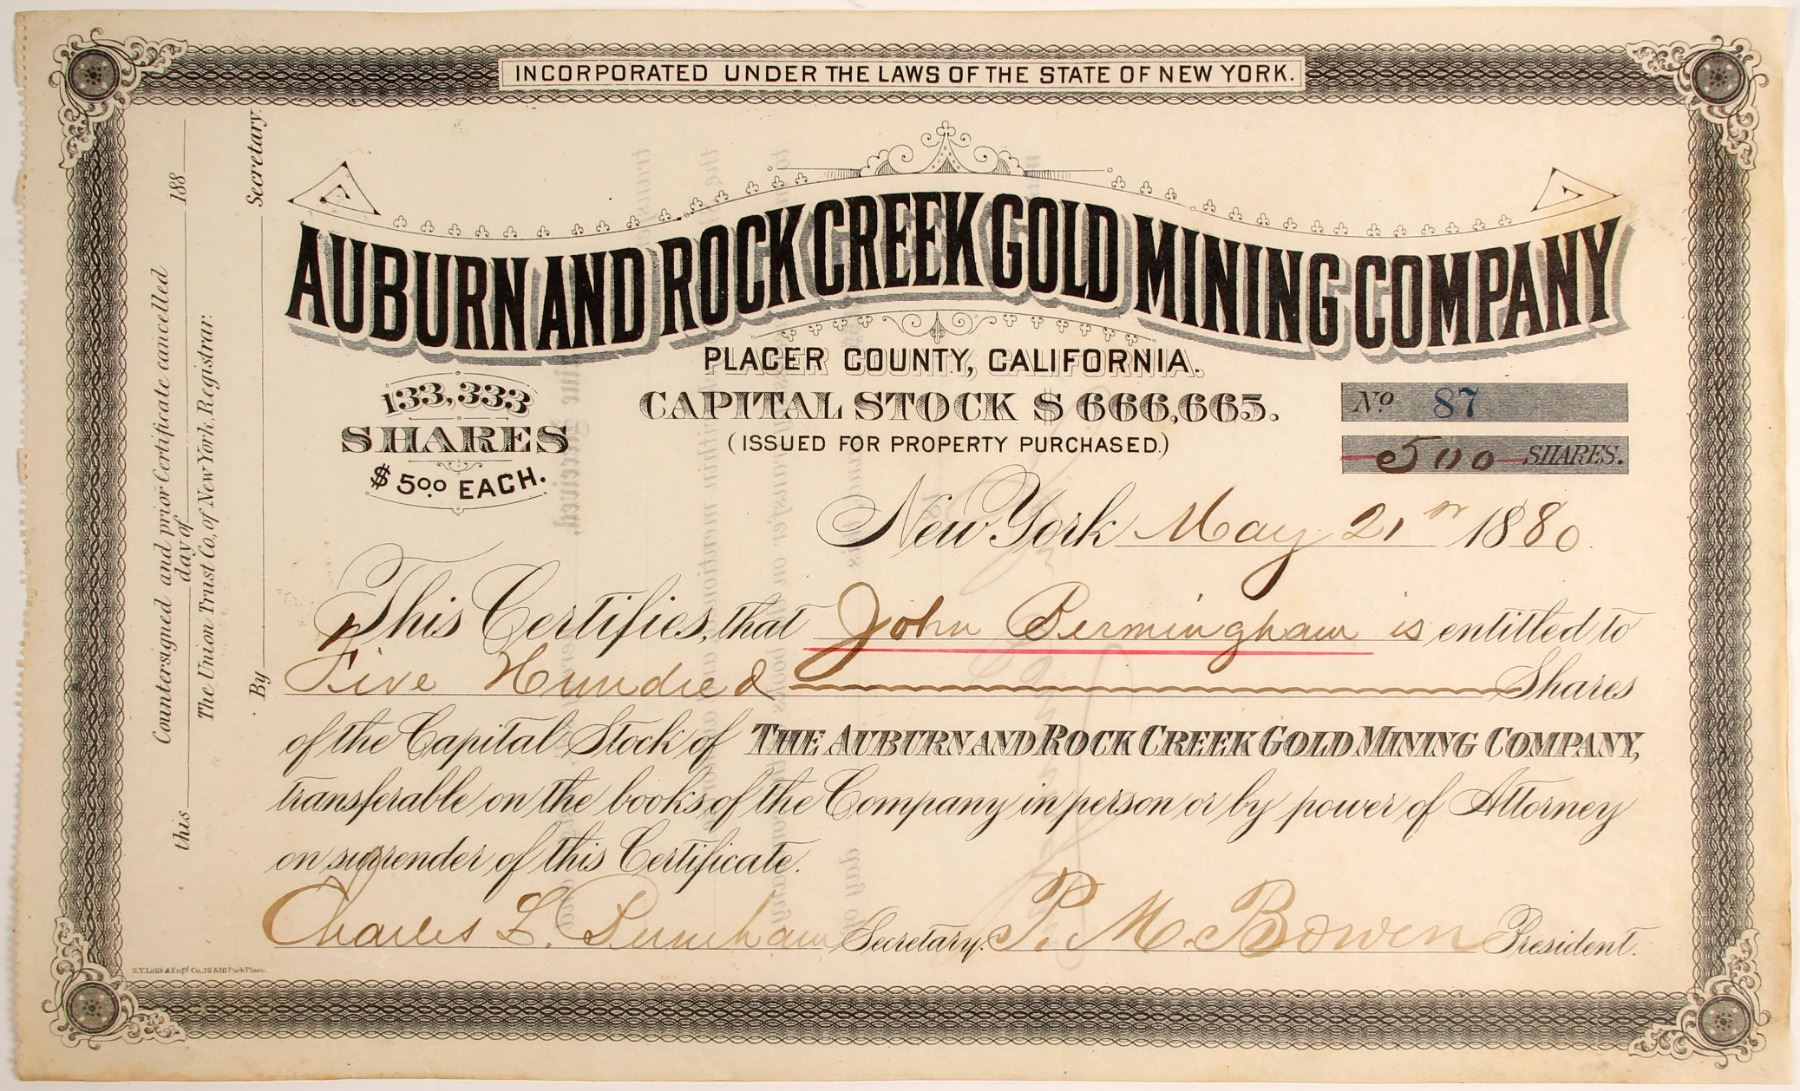 INCORPORATED UNDER THE LAWS OF THE STATE OF NEW YORK.
AUBURN AND ROCK CREEK GOLD MINING COMPANY
PLACER COUNTY, CALIFORNIA.
133,333
SHARES
$5.00 EACH.
CAPITAL STOCK $666,665.
(ISSUED FOR PROPERTY PURCHASED.)
No 87
500 SHARES.
New York May 21 1880
This Certifies, that John Bermingham is entitled to
Five Hundred Shares
of the Capital Stock of THE AUBURN AND ROCK CREEK GOLD MINING COMPANY,
transferable on the books of the Company in person or by power of Attorney
on surrender of this Certificate.
Charles L. Secretary. P. M. Bowen President.
N.Y. Lith & Engr Co., 16 & 18 Park Place.
Countersigned and prior Certificate cancelled
this day of 188
The Union Trust Co, of New York, Registrar.
By Secretary